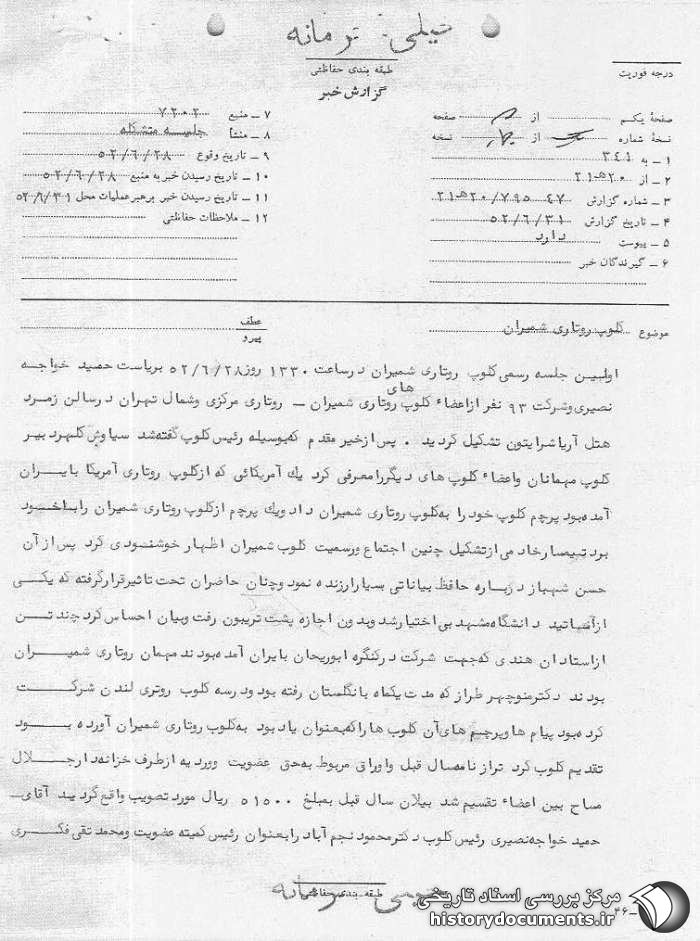 خیلی محرمانه
طبقه بندی حفاظتی
گزارش خبر
درجه فوریت
صفحهٔ یکم از صفحه
نسخهٔ شماره از نسخه
۱ ـ به ۳۴۱
۲ ـ از ۲۰هـ۲۱
۳ ـ شماره گزارش ۴۷ ۲۰/۷۹۵هـ۲۱
۴ ـ تاریخ گزارش ۵۲/۶/۳۱
۵ ـ پیوست دارد
۶ ـ گیرندگان خبر
۷ ـ منبع ۷۲۰۲
۸ ـ منشأ جلسه متشکله
۹ ـ تاریخ وقوع ۵۲/۶/۲۸
۱۰ ـ تاریخ رسیدن خبر به منبع ۵۲/۶/۲۸
۱۱ ـ تاریخ رسیدن خبر برهبرعملیات محل ۵۲/۶/۳۱
۱۲ ـ ملاحظات حفاظتی
موضوع کلوپ روتاری شمیران
عطف
پیرو
اولین جلسه رسمی کلوپ روتاری شمیران در ساعت ۱۳۳۰ روز ۵۲/۶/۲۸ بریاست حمید خواجه
نصیری و شرکت ۹۳ نفر از اعضاء کلوپ های روتاری شمیران ـ روتاری مرکزی و شمال تهران در سالن زمرد
هتل آریا شرایتون تشکیل گردید . پس از خیر مقدم که بوسیله رئیس کلوپ گفته شد سیاوش گلهرد بیر
کلوپ مهمانان و اعضاء کلوپ های دیگر را معرفی کرد یك آمریکائی که از کلوپ روتاری آمریکا بایران
آمده بود پرچم کلوپ خود را به کلوپ روتاری شمیران داد و یك پرچم از کلوپ روتاری شمیران را با خود
برد تیمسار خادمی از تشکیل چنین اجتماع و رسمیت کلوب شمیران اظهار خوشنودی کرد پس از آن
حسن شهباز درباره حافظ بیاناتی بسیار ارزنده نمود و چنان حاضران تحت تاثیر قرار گرفته که یکی
از اساتید دانشگاه مشهد بی اختیار شد و بدون اجازه پشت تریبون رفت و بیان احساس کرد چند تن
از استادان هندی که جهت شرکت در کنگره ابوریحان بایران آمده بودند مهمان روتاری شمیران
بودند دکتر منوچهر طراز که مدت یکماه بانگلستان رفته بود و در سه کلوب روتری لندن شرکت
کرده بود پیام ها و پرچم های آن کلوب ها را که بعنوان یاد بود به کلوپ روتاری شمیران آورده بود
تقدیم کلوب کرد ترازنامه سال قبل و اوراق مربوط به حق عضویت و ورود به از طرف خزانه دار جلال
مساح بین اعضاء تقسیم شد بیلان سال قبل بمبلغ ۵۱۵۰۰ ریال مورد تصویب واقع گردید آقای
حمید خواجه نصیری رئیس کلوپ دکتر محمود نجم آباد را بعنوان رئیس کمیته عضویت و محمد تقی فکری
طبقه بندی حفاظتی
خیلی محرمانه
مرکز بررسی اسناد تاریخی
historydocuments.ir